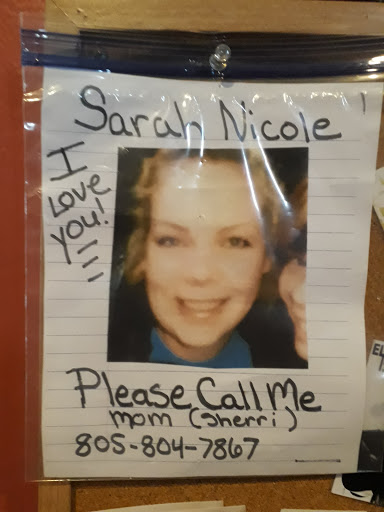 Sarah Nicole
I
Love
you!
Please Call Me
mom (Sherri)
805-804-7867
EL